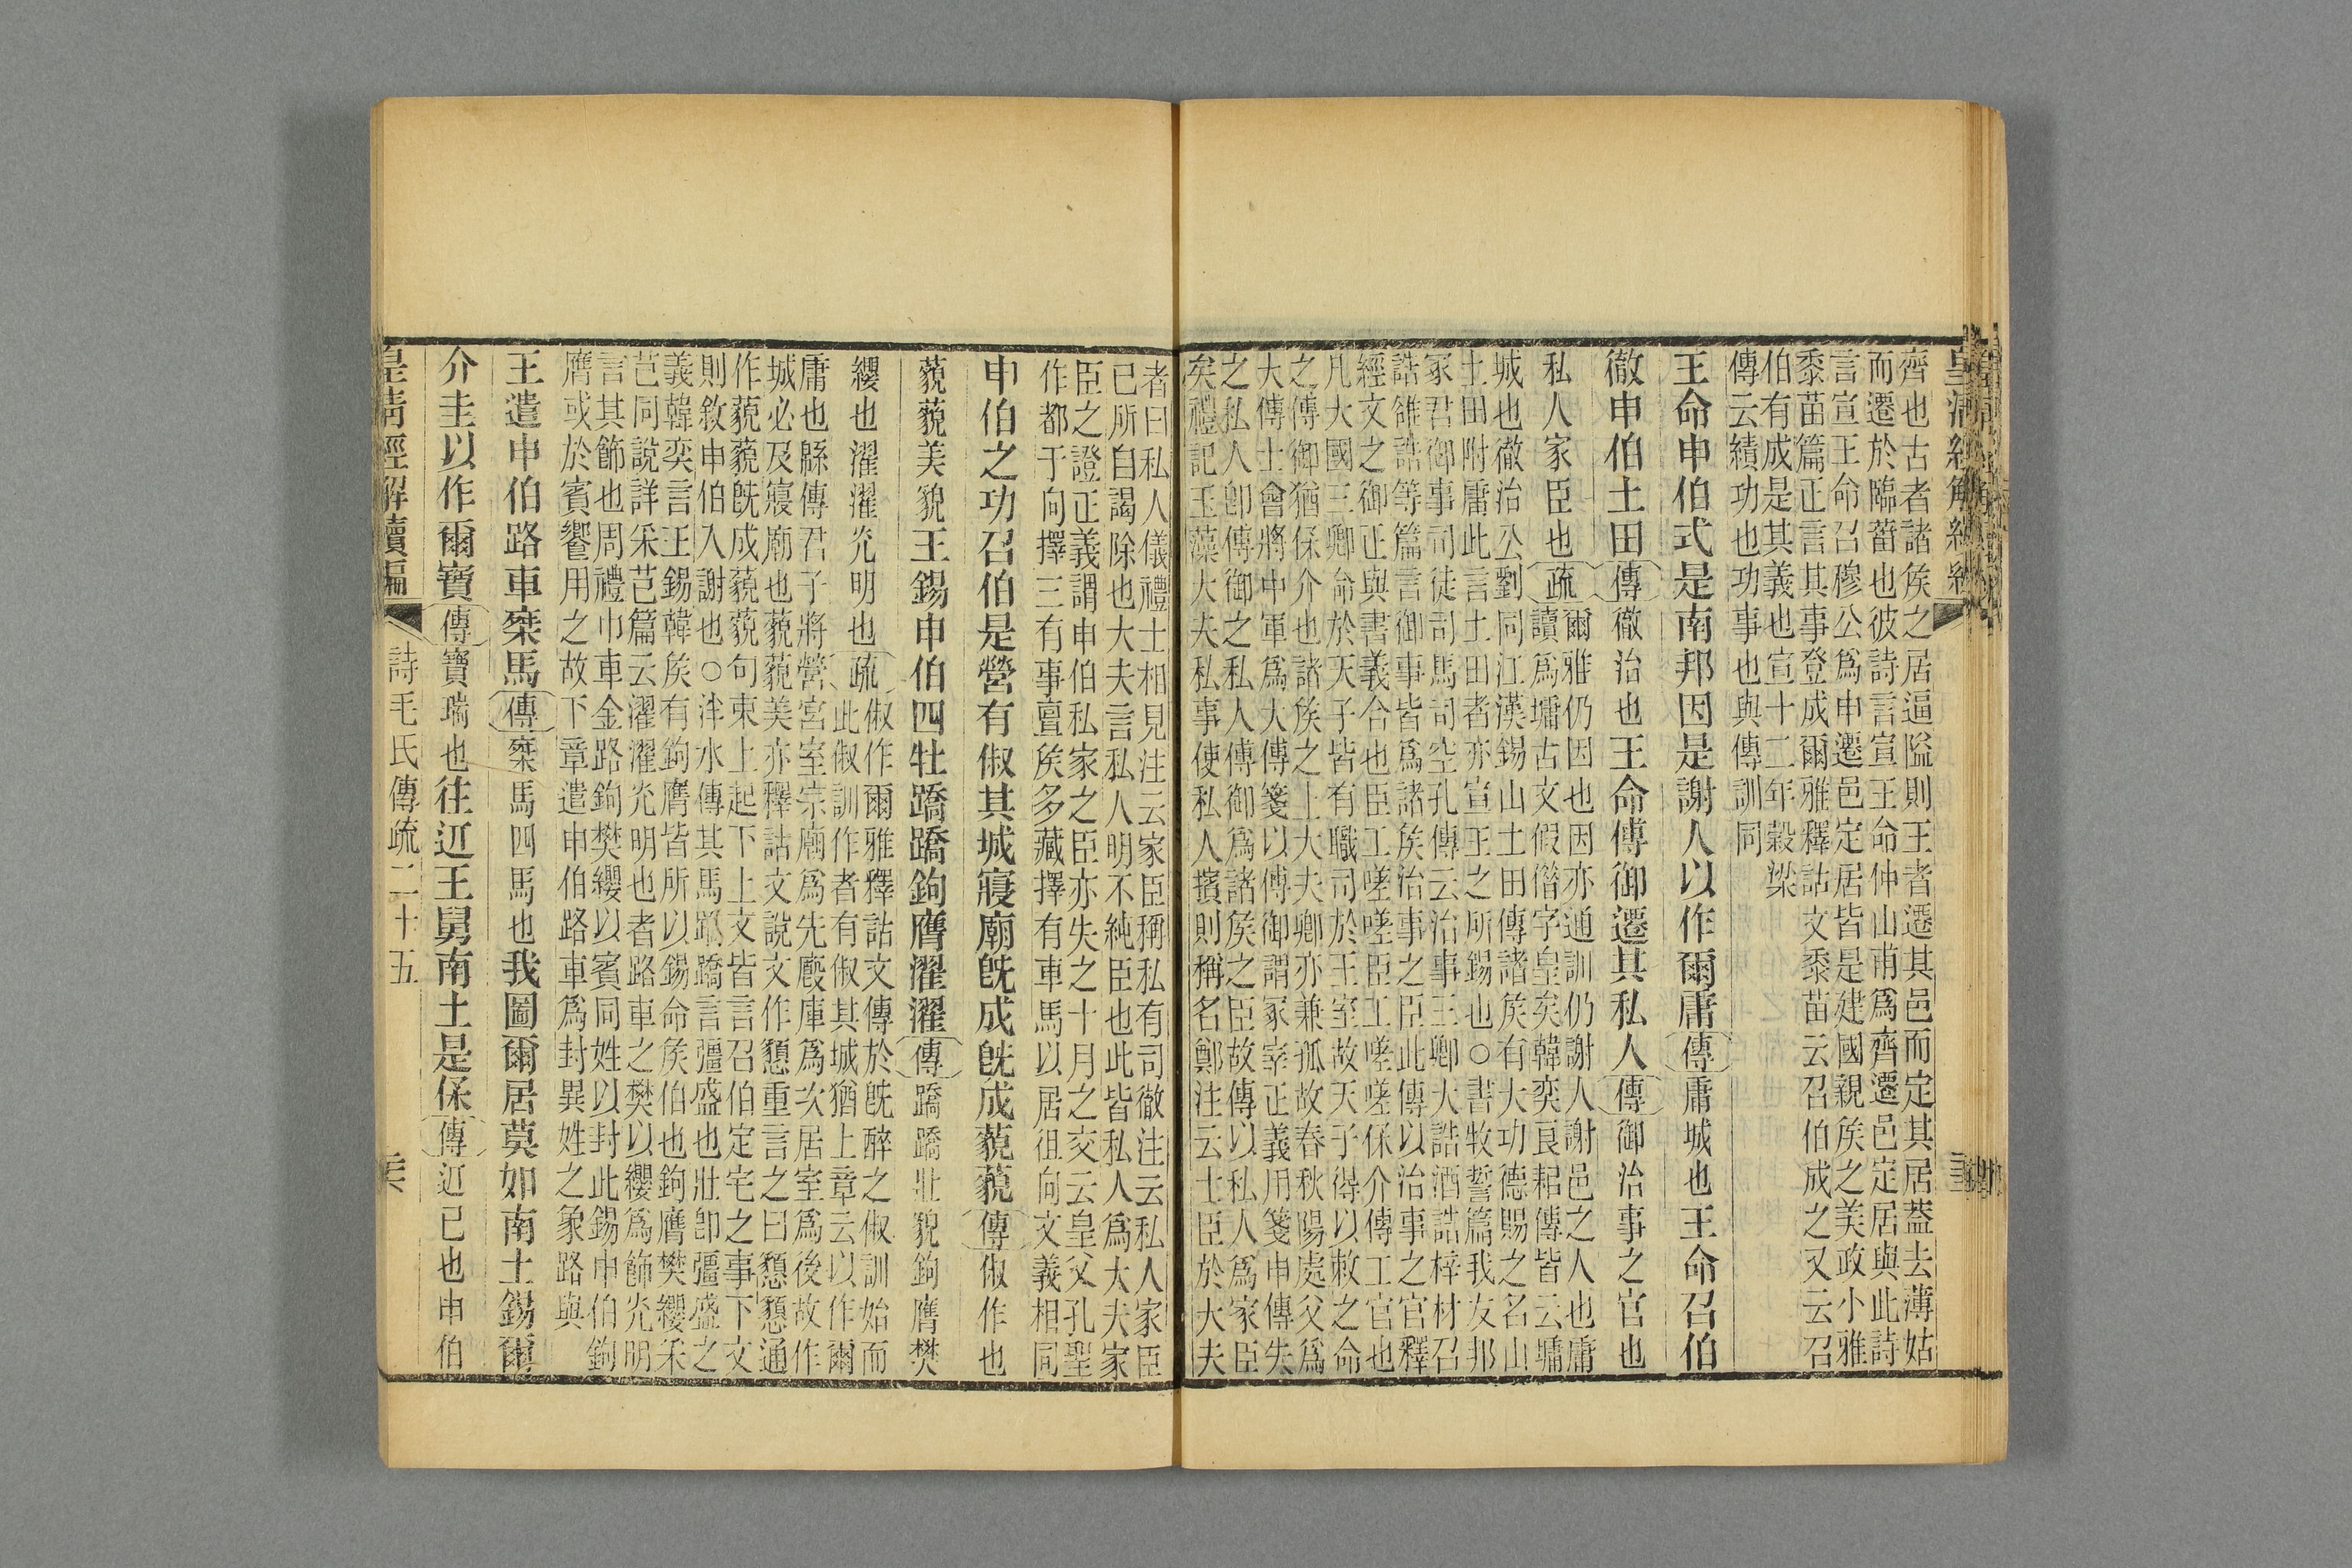 齊也古者諸矦之居逼隘則王者遷其邑而定其居葢去薄姑
而遷於臨菑也彼詩言宣王命仲山甫爲齊遷邑定居與此詩
言宣王命召穆公爲申遷邑定居皆是建國親矦之美政小雅
黍苗篇正言其事登成爾雅釋詁文黍苗云召伯成之又云召
伯有成是其義也宣十二年穀梁
傳云績功也功事也與傳訓同
王命申伯式是南邦因是謝人以作爾庸傳庸城也王命召伯
徹申伯土田傳徹治也王命傅御遷其私人傳御治事之官也
私人家臣也疏
爾雅仍因也因亦通訓仍謝人謝邑之人也庸
讀爲墉古文假偕字皇矣韓奕良耜傳皆云墉
城也徹治公劉同江漢錫山土田傳諸矦有大功德賜之名山
土田附庸此言土田者亦宣王之所錫也○書牧誓篇我友邦
冢君御事司徒司馬司空孔傳云治事三卿大誥酒誥梓材召
誥雒誥等篇言御事皆爲諸矦治事之臣此傳以治事之官釋
經文之御正與書義合也臣工嗟嗟臣工嗟嗟保介傳工官也
凡大國三卿命於天子皆有職司於王室故天子得以敕之命
之傅御猶保介也諸矦之上大夫卿亦兼孤故春秋陽處父爲
大傅士會將中軍爲大傅箋以傅御謂冢宰正義用箋申傳失
之私人卽傅御之私人傅御爲諸矦之臣故傳以私人爲家臣
矣禮記玉藻大夫私事使私人擯則稱名鄭注云士臣於大夫
者曰私人儀禮士相見注云家臣稱私有司徹注云私人家臣
已所自謁除也大夫言私人明不純臣也此皆私人爲大夫家
臣之證正義謂申伯私家之臣亦失之十月之交云皇父孔聖
作都于向擇三有事亶矦多藏擇有車馬以居徂向文義相同
申伯之功召伯是營有俶其城寢廟旣成旣成藐藐傳俶作也
藐藐美貌王錫申伯四牡蹻蹻鉤膺濯濯傳蹻蹻壯貌鉤膺樊
纓也濯濯光明也疏
俶作爾雅釋詁文傳於旣醉之俶訓始而
此俶訓作者有俶其城猶上章云以作爾
庸也緜傳君子將營宮室宗廟爲先廄庫爲次居室爲後故作
城必及寢廟也藐藐美亦釋詁文說文作懇重言之曰懇懇通
作藐藐旣成藐藐句束上起下上文皆言召伯定宅之事下文
則敘申伯入謝也○泮水傳其馬蹻蹻言彊盛也壯卽彊盛之
義韓奕言王錫韓矦有鉤膺皆所以錫命矦伯也鉤膺樊纓釆
芑同說詳采芑篇云濯濯光明也者路車之樊以纓爲飾光明
言其飾也周禮巾車金路鉤樊纓以賓同姓以封此錫申伯鉤
膺或於賓饗用之故下章遣申伯路車爲封異姓之象路與
王遣申伯路車椉馬傳椉馬四馬也我圖爾居莫如南土錫爾
介圭以作爾寶傳寶瑞也往辺王舅南土是保傳辺已也申伯
皇清經解續編 詩毛氏傳疏二十五